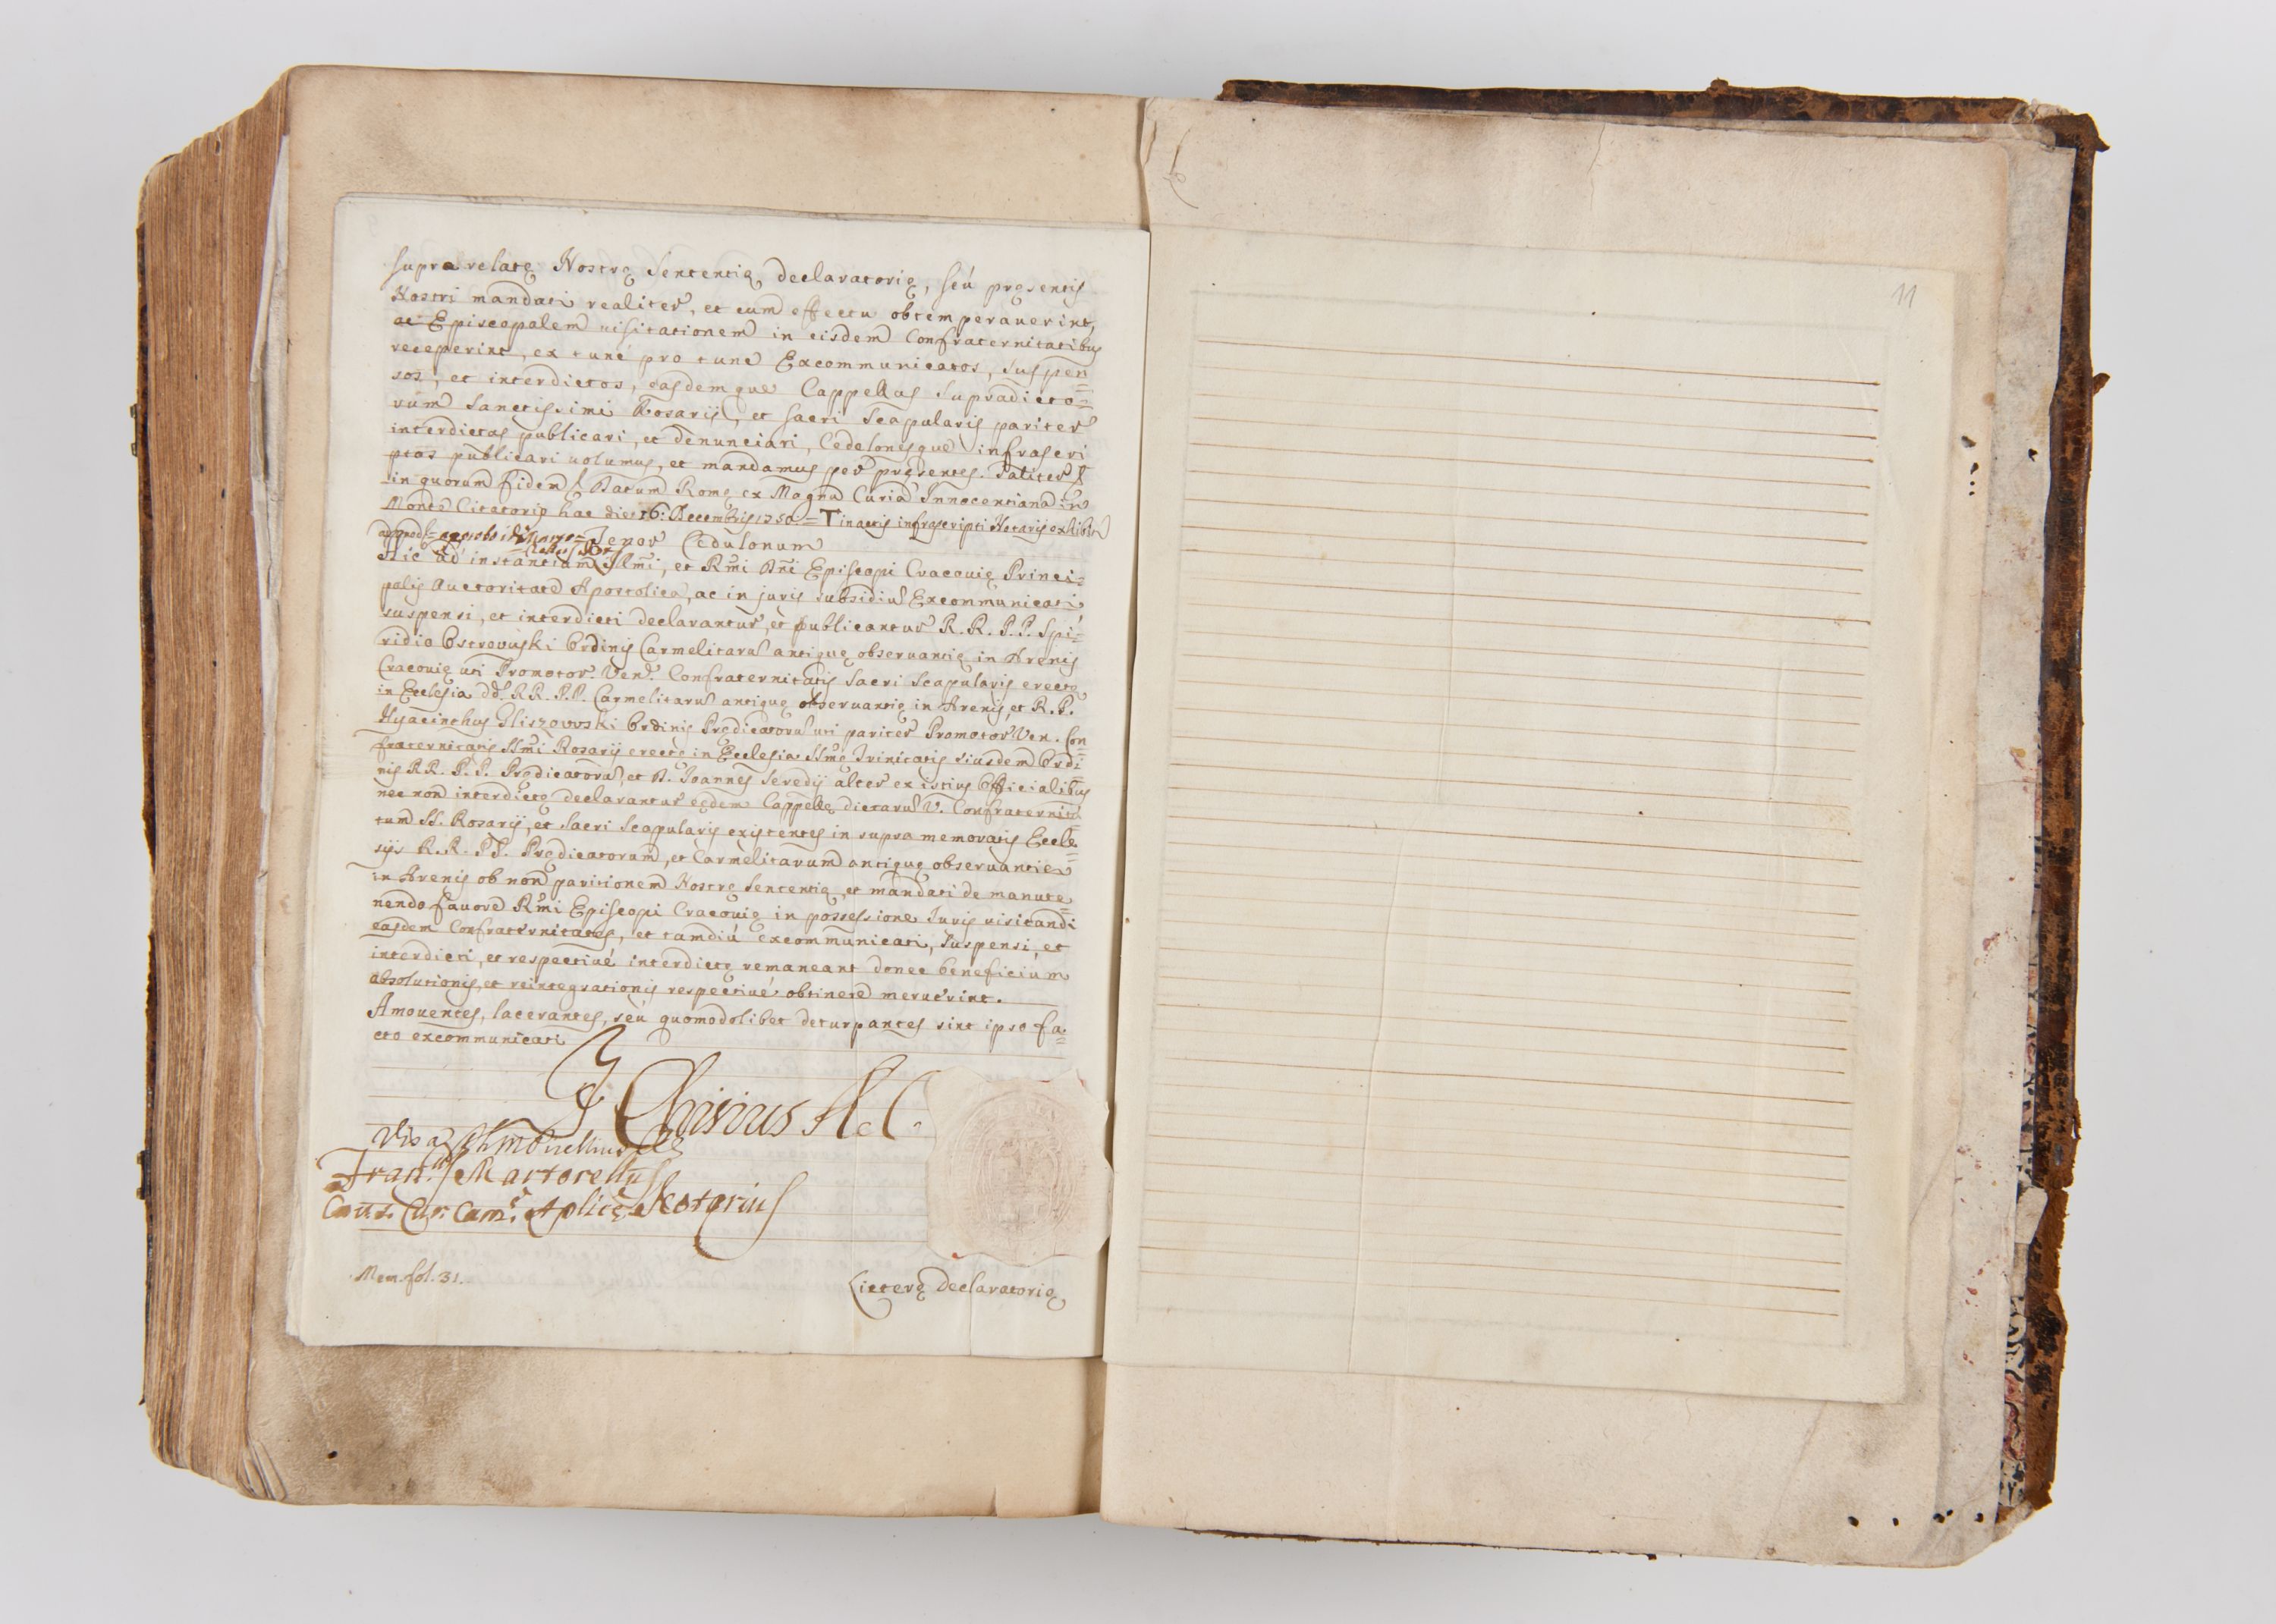 supra relatę Nostrę Sententię declaratorię, seú pręsentis
Nostri mandati realiter, et cum effectu obtemperauerint,
ac Episcopalem uisitationem in eisdem Confraternitatibus
receperint, ex tunc pro tunc Excommunicatos, suspen=
sos, et interdictos, easdemque Cappellas supradicto=
rum Sanctissimi Rosarij, et sacri Scapularis pariter
interdictas publicari, et denunciari, Cedulonesque infrascri
ptos publicari uolumus, et mandamus per pręsentes. Taliter
in quorum fidem Datum Romę ex Magna Curia Innocentiana in
Monte Citatorio hac die 16. Decembris 1750 = T in actis infrascripti Notarij exhibitis
Tenor Cedulonum
Hic ad instantiam Illmi, et Rmi Dni Episcopi Cracouię Princi=
palis auctoritate Apostolica, ac in juris subsidiu Excommunicati
suspensi, et interdicti declarantur, et publicantur R. R. P. P. Spi=
ridio Ostrowski Ordinis Carmelitaru antiquę obseruantię in Arenis
Cracouię uti Promotor Ven. Confraternitatis Sacri Scapularis erectę
in Ecclesia dd. RR. P.P. Carmelitaru antiquę obseruantię in Arenis, et R. P.
Hyacinthus Gliszowski Ordinis Prędicatoru uti pariter Promotor Ven. Con
fraternitatis SSmi Rosarij erectę in Ecclesia SSmę Trinitatis eiusdem Ordi
nis RR. P. P. Prędicatoru, et D. Joannes Seredij alter ex istius Officialibus
nec non interdictę declarantur eędem Cappellę dictaru V. Confraternita
tum SS. Rosarij, et Sacri Scapularis existentes in supra memoratis Eccle=
sijs R. R. P.P. Prędicatorum, et Carmelitarum antiquę obseruantię
in Arenis ob non paritionem Nostrę Sententię, et mandati de manute=
nendo fauore Rmi Episcopi Cracouię in possessione Juris uisitandi
easdem Confraternitates, et tamdiú excommunicati, suspensi, et
interdicti, et respectiué interdictę remaneant donec beneficium
absolutionis, et reintegrationis respectiué obtinere meruerint.
Amouentes, lacerantes, seú quomodolibet deturpantes sint ipso fa=
cto excommunicati
Chisius A. C.
Visa
Fran.cus Martorellus
Cur. Cam.ę Aplicę Notarius
Mem. fol. 31.
Litterę declaratorię
11